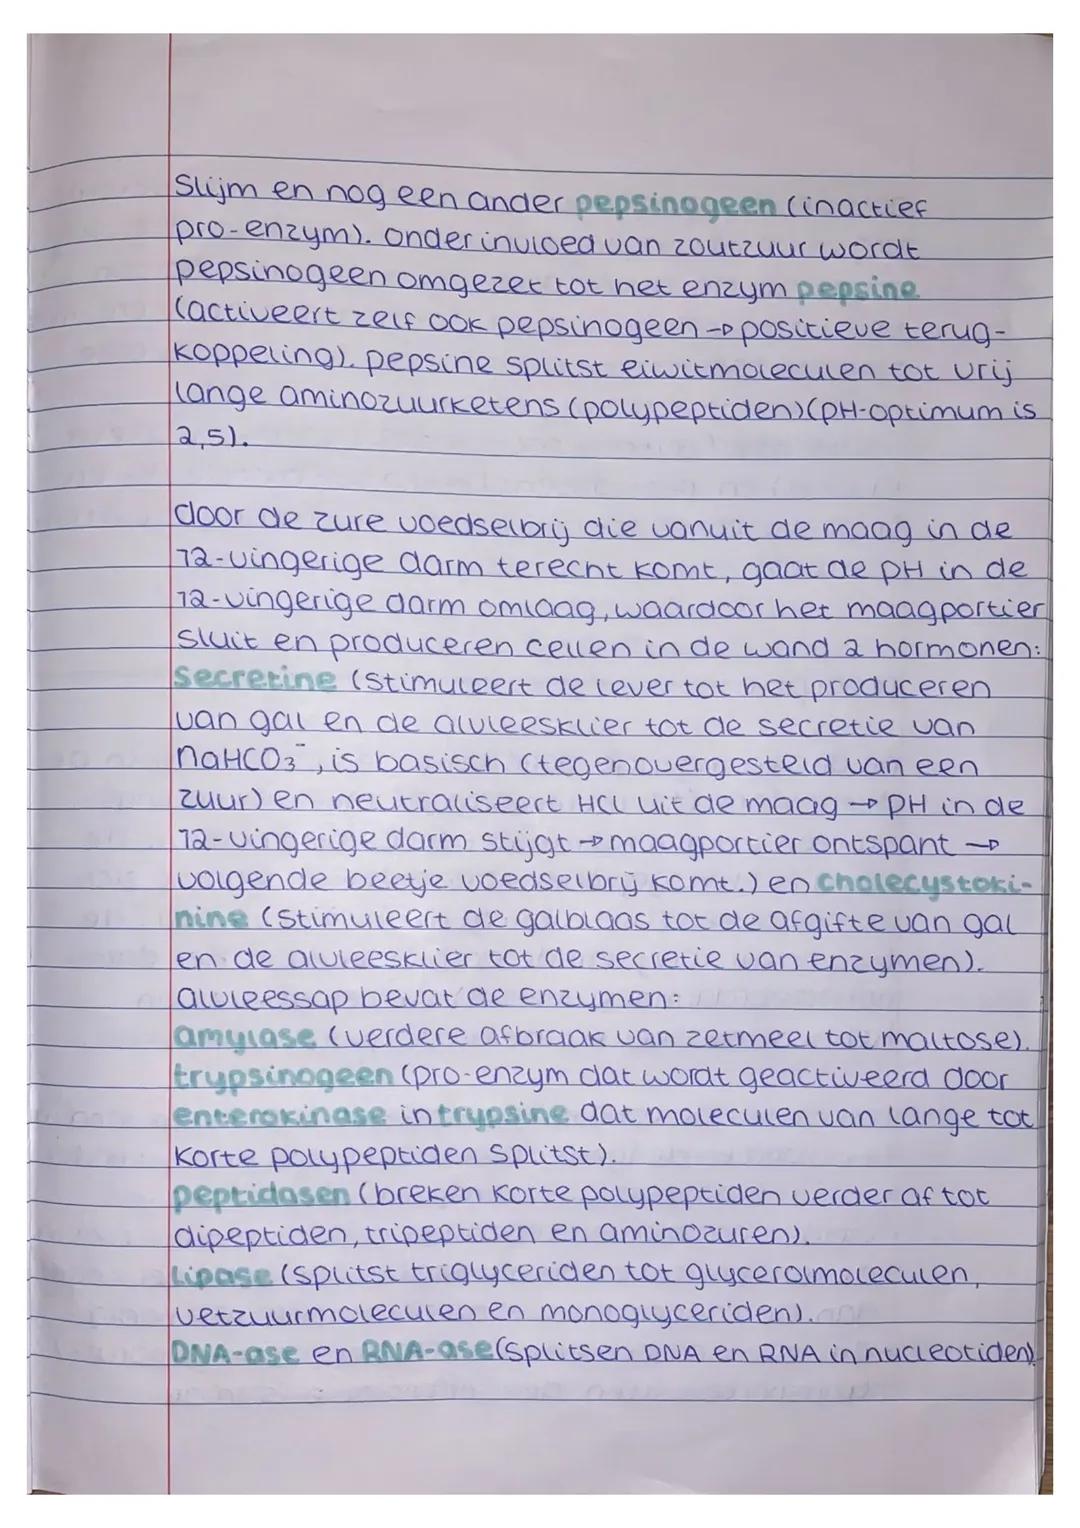 Slijm en nog een ander pepsinogeen (inactief
pro-enzym). onder invloed van zoutzuur wordt
pepsinogeen omgezet tot het enzym pepsine
(activeert zelf ook pepsinogeen → positieve terug-
koppeling). pepsine splitst eiwitmoleculen tot vrij
lange aminozuurketens (polypeptiden) (pH-optimum is
2,5).
door de zure voedselbrij die vanuit de maag in de
12-vingerige darm terecht komt, gaat de pH in de
12-vingerige darm omlaag, waardoor het maagportier
sluit en produceren cellen in de wand 2 hormonen:
Secretine (stimuleert de lever tot het produceren
van gal en de alvleesklier tot de secretie van
NaHCO₃⁻, is basisch (tegenovergesteld van een
zuur) en neutraliseert HCl uit de maag → pH in de
12-vingerige darm stijgt → maagportier ontspant →
volgende beetje voedselbrij komt.) en cholecystoki-
nine (stimuleert de galblaas tot de afgifte van gal
en de alvleesklier tot de secretie van enzymen).
alvleessap bevat de enzymen:
amylase (verdere afbraak van zetmeel tot maltose).
trypsinogeen (pro-enzym dat wordt geactiveerd door
enterokinase in trypsine dat moleculen van lange tot
korte polypeptiden splitst).
peptidasen (breken korte polypeptiden verder af tot
dipeptiden, tripeptiden en aminozuren).
Lipase (splitst triglyceriden tot glycerolmoleculen,
vetzuurmoleculen en monoglyceriden).
DNA-ase en RNA-ase (splitsen DNA en RNA in nucleotiden).